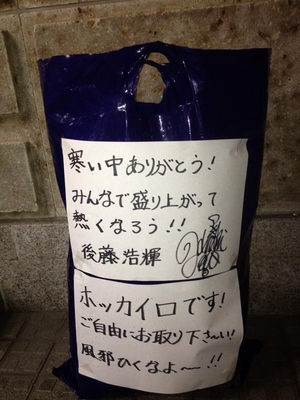 寒い中ありがとう!
みんなで盛り上がって
熱くなろう!!
後藤浩輝
ホッカイロです!
ご自由にお取り下さ〜い!
風邪ひくなよ〜!!